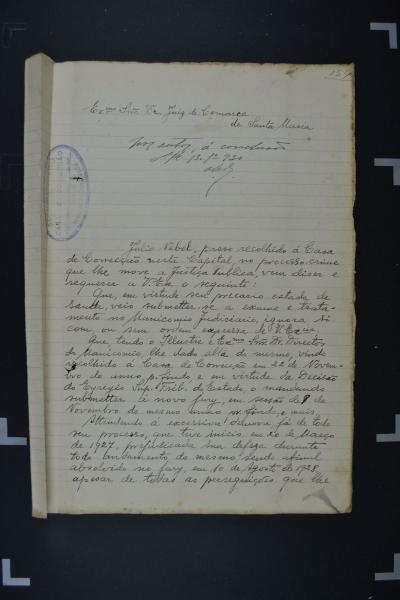 15
Exmo Snr. Dr. Juiz de Comarca
de Santa Maria
nos autos, á conclusão
S.M. 13.1º 930
Julio Nebel, preso recolhido á Casa
de Correcção nesta Capital, no processo crime
que lhe move a Justiça Publica, vem dizer e
requerer a V. Ex o seguinte:
Que, em virtude seu precario estado de
saude, veio submetter-se a exame e trata-
mento no Manicomio Judiciario, ignora si
com ou sem ordem expressa de V. Excia,
Que tendo o Illustre e Exmo Snr. Dr. Director
do Manicomio, lhe dado alta do mesmo, vindo
recolhido á Casa de Correcção em 22 de Novem-
bro do anno p. findo e em virtude da Decisão
do Egregio Sup. Trib. do Estado, o mandando
submetter á novo jury, em sessão de 8 de
Novembro do mesmo anno p. findo, e mais,
Attendendo á excessiva demora já de todo
seu processo, que teve inicio em 20 de Março
de 1927, prejudicada sua defeza durante
todo andamento do mesmo, sendo afinal
absolvido no jury, em 10 de Agosto de 1928,
apesar de todas as perseguições que lhe